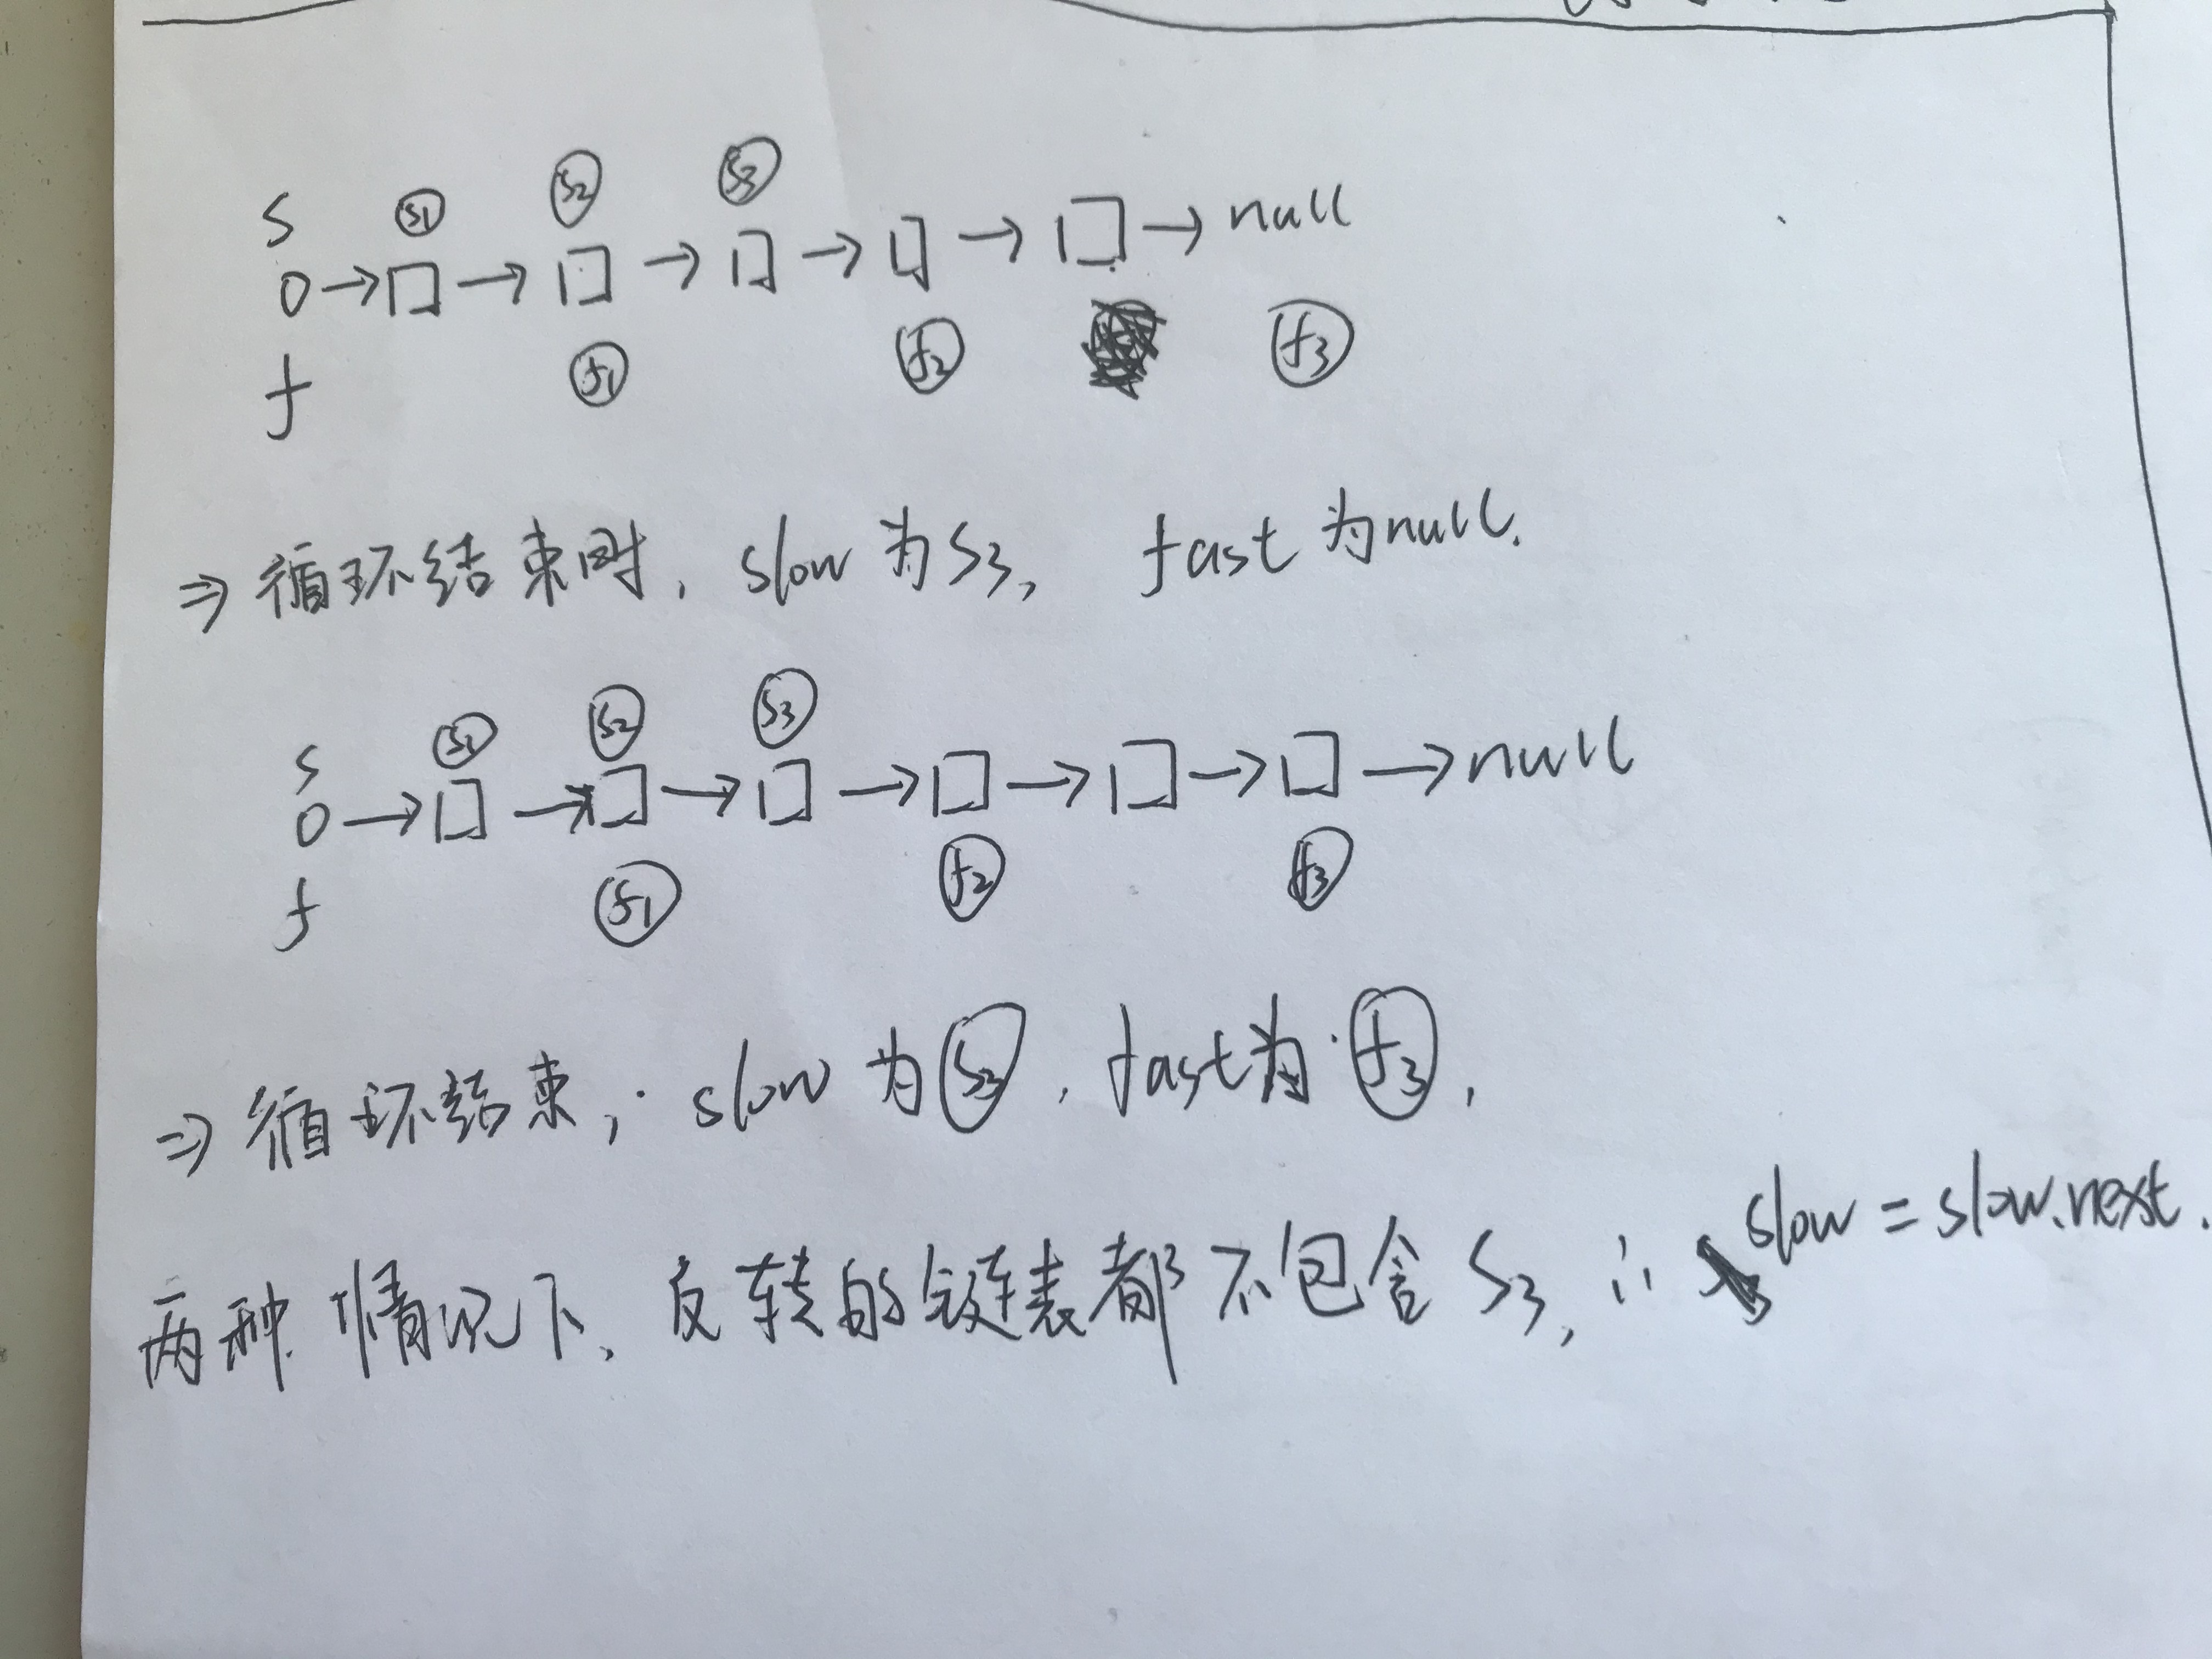 S S1 S2 S3
0→□→□→□→□→□→null
f f1 f2 f3
⇒循环结束时, slow为S3, fast为null.
S S1 S2 S3
0→□→□→□→□→□→□→null
f f1 f2 f3
⇒循环结束, slow为S3, fast为f3,
两种情况下, 反转的链表都不包含S3, ∴ slow = slow.next.